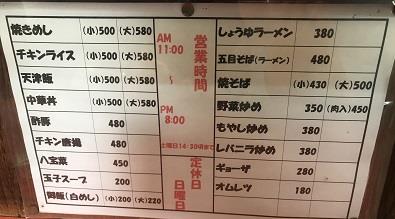 焼きめし (小)500 (大)580
チキンライス (小)500 (大)580
天津飯 (小)500 (大)580
中華丼 (小)500 (大)580
酢豚 480
チキン唐揚 480
八宝菜 450
玉子スープ 200
御飯(白めし) (小)200 (大)220
営業時間
AM 11:00
~
PM 8:00
土曜日14:30頃まで
定休日
日曜日
しょうゆラーメン 380
五目そば(ラーメン) 480
焼そば (小)430 (大)500
野菜炒め 350 (肉入)450
もやし炒め 380
レバニラ炒め 380
ギョーザ 280
オムレツ 180